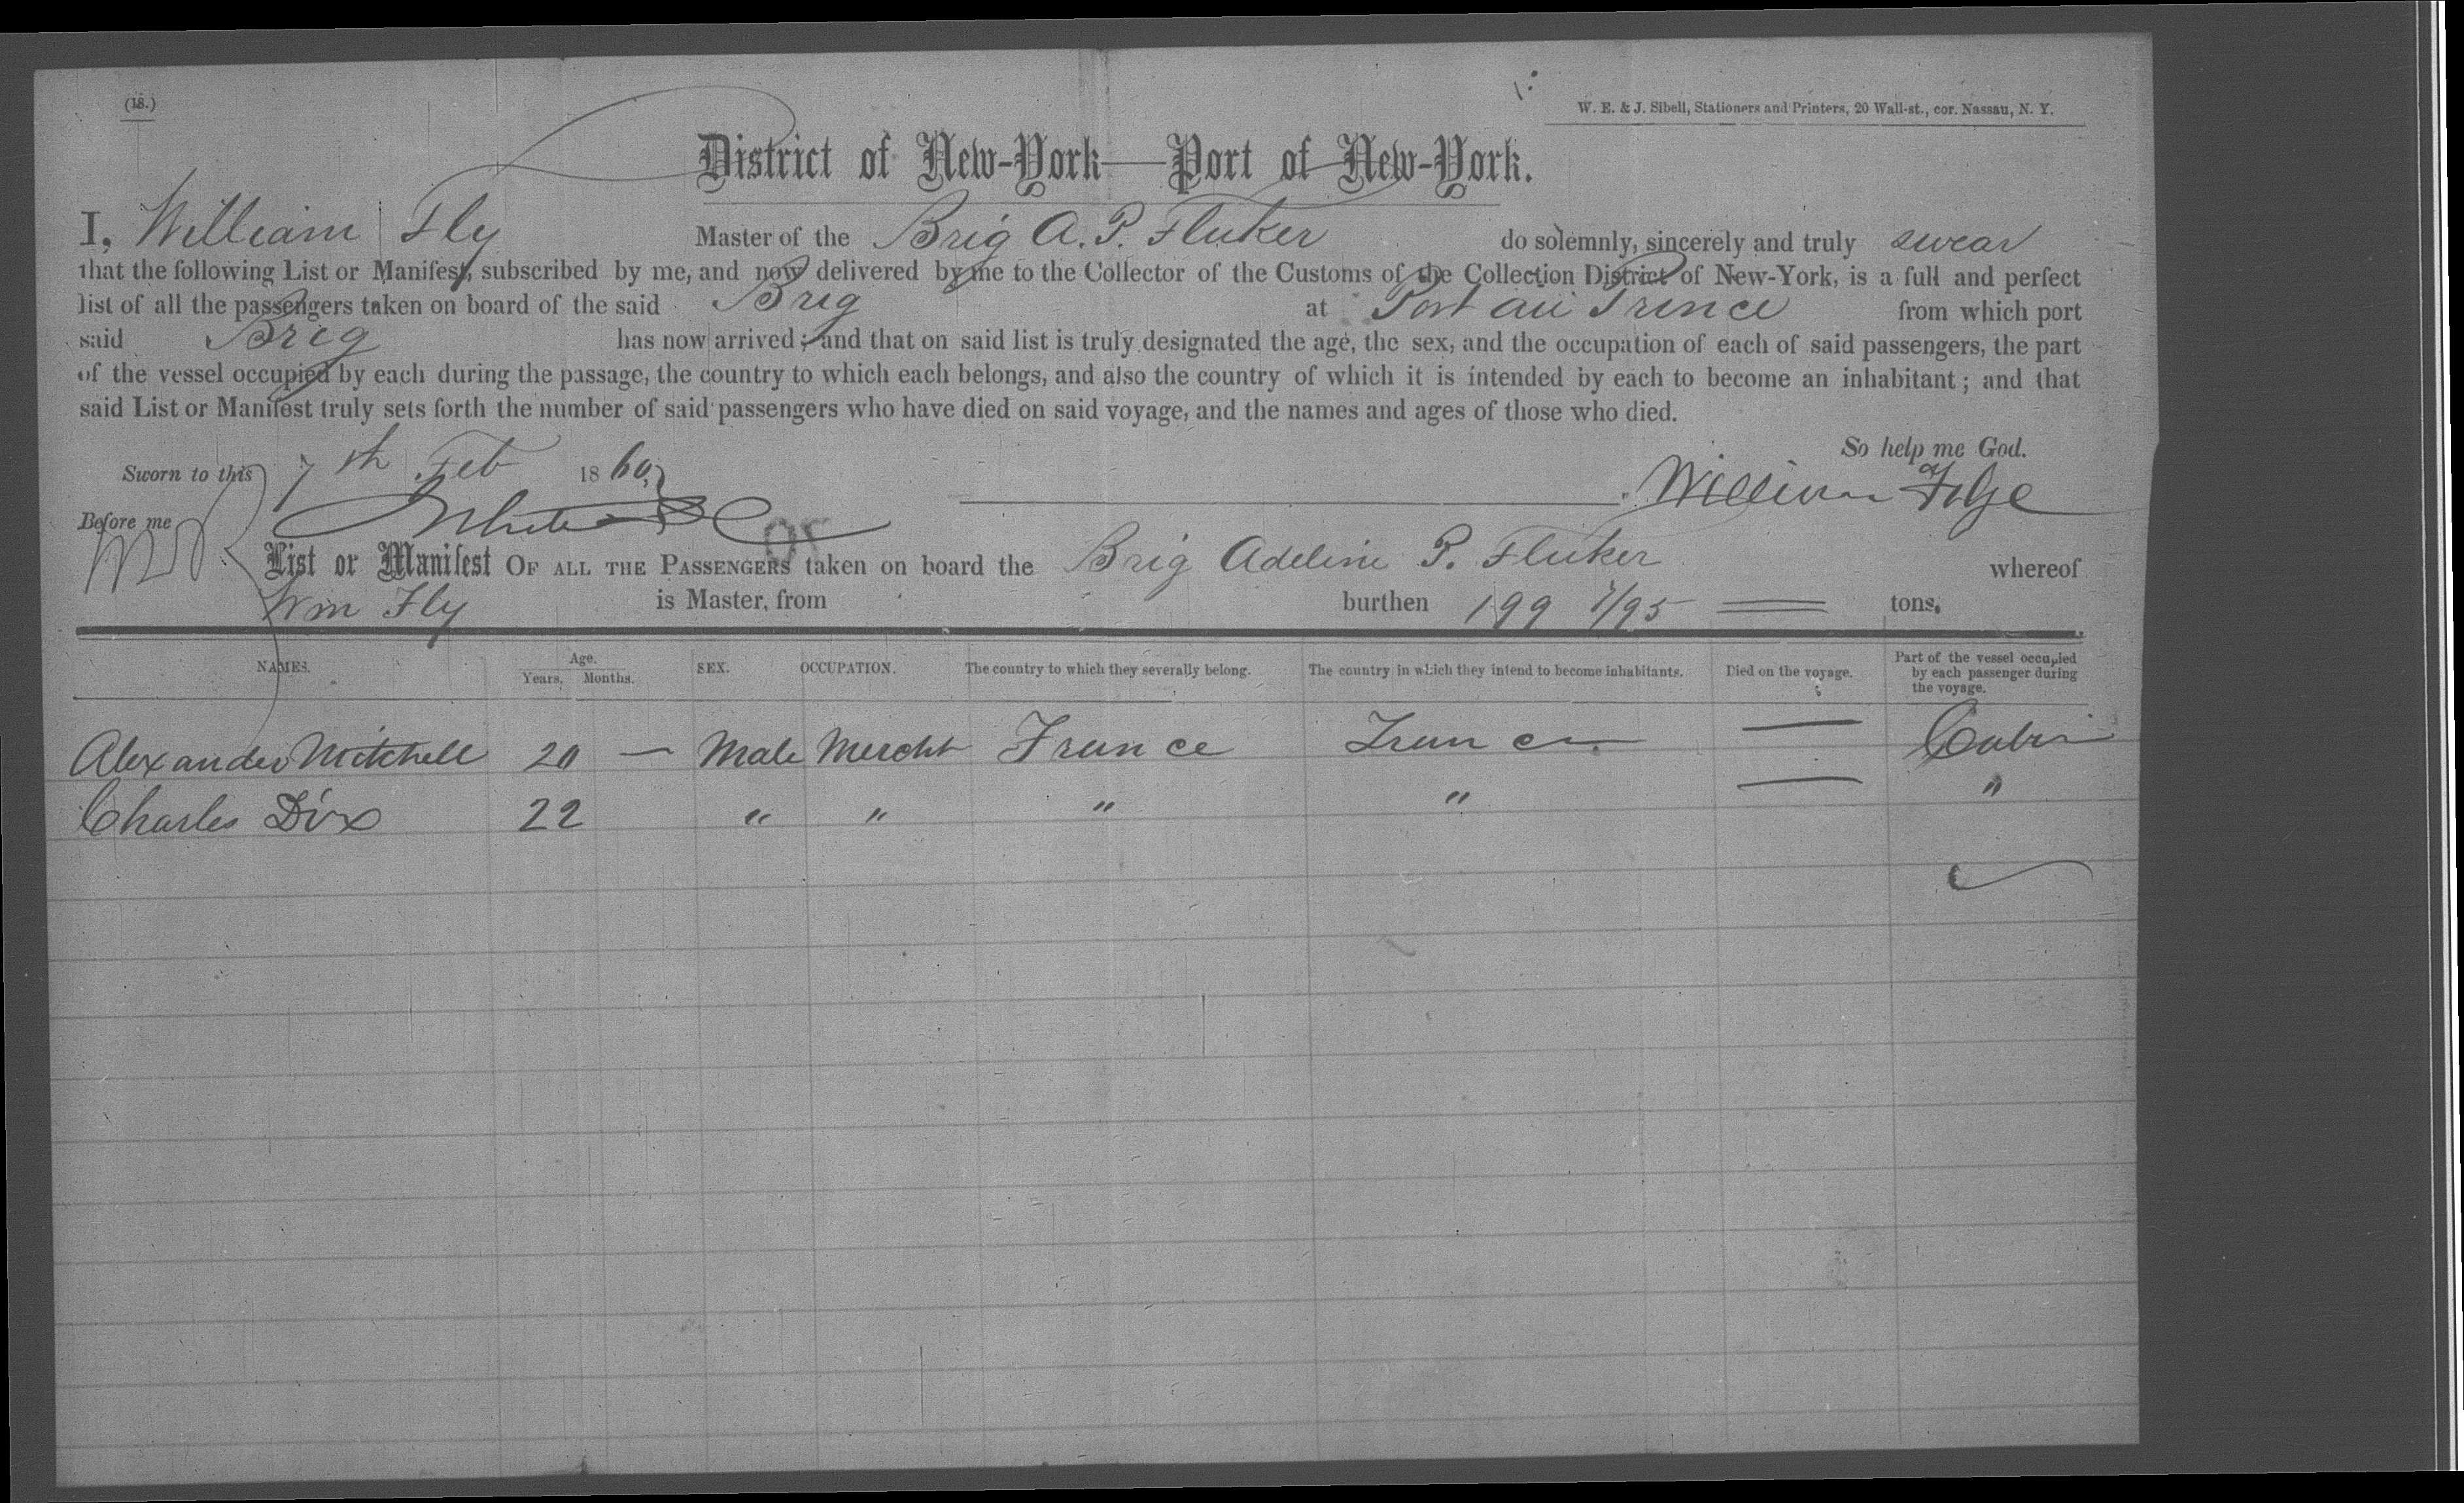 (18.)
W. E. & J. Sibell, Stationers and Printers, 20 Wall-st., cor. Nassau, N. Y.
District of New-York—Port of New-York.
I, William Fly Master of the Brig A. P. Fluker do solemnly, sincerely and truly swear
that the following List or Manifest, subscribed by me, and now delivered by me to the Collector of the Customs of the Collection District of New-York, is a full and perfect
list of all the passengers taken on board of the said Brig at Port au Prince from which port
said Brig has now arrived; and that on said list is truly designated the age, the sex, and the occupation of each of said passengers, the part
of the vessel occupied by each during the passage, the country to which each belongs, and also the country of which it is intended by each to become an inhabitant; and that
said List or Manifest truly sets forth the number of said passengers who have died on said voyage, and the names and ages of those who died.
So help me God.
Sworn to this 7th Feb 1860, William
Before me
List or Manifest OF ALL THE PASSENGERS taken on board the Brig Adeline P. Fluker whereof
Wm Fly is Master, from burthen 199 /95 tons.
NAMES. Age. Years. Months. SEX. OCCUPATION. The country to which they severally belong. The country in which they intend to become inhabitants. Died on the voyage. Part of the vessel occupied by each passenger during the voyage.
Alexander Mitchell 20 — Male Mercht France France — Cabin
Charles Dix 22 " " " " — "